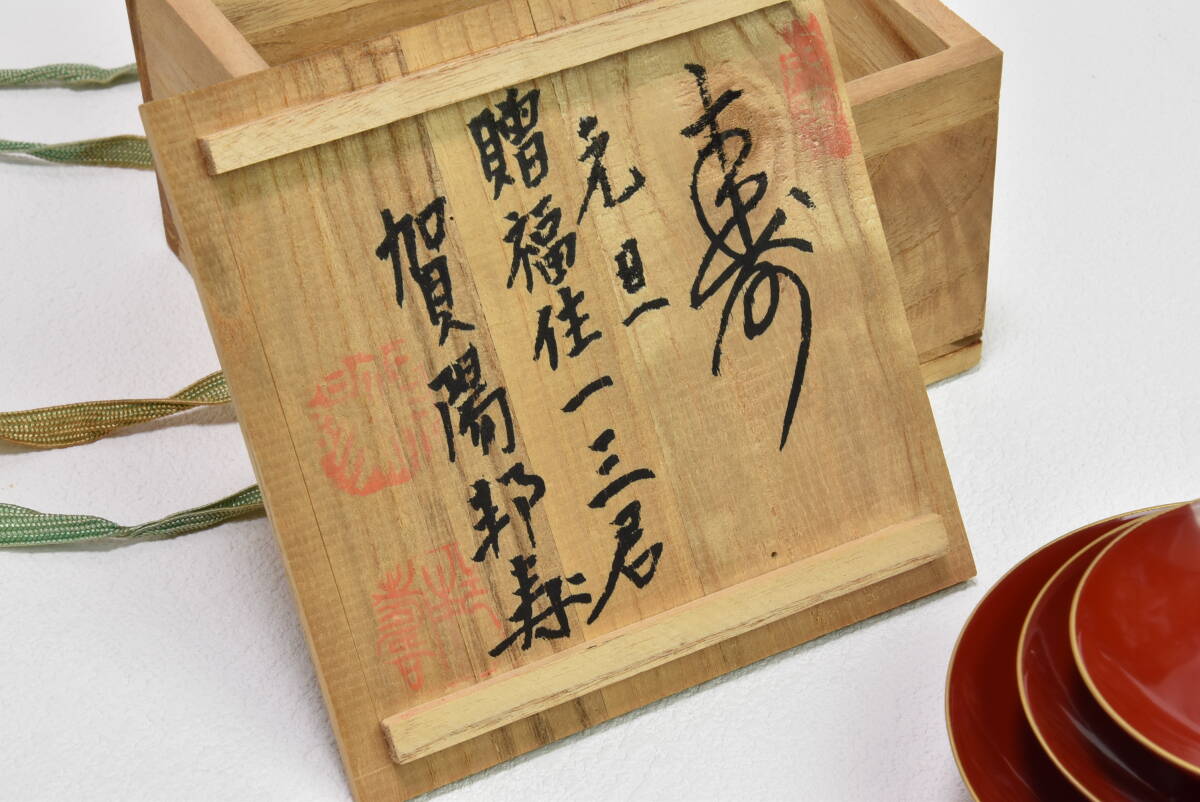 寿
元旦
贈福住一三君
賀陽邦寿